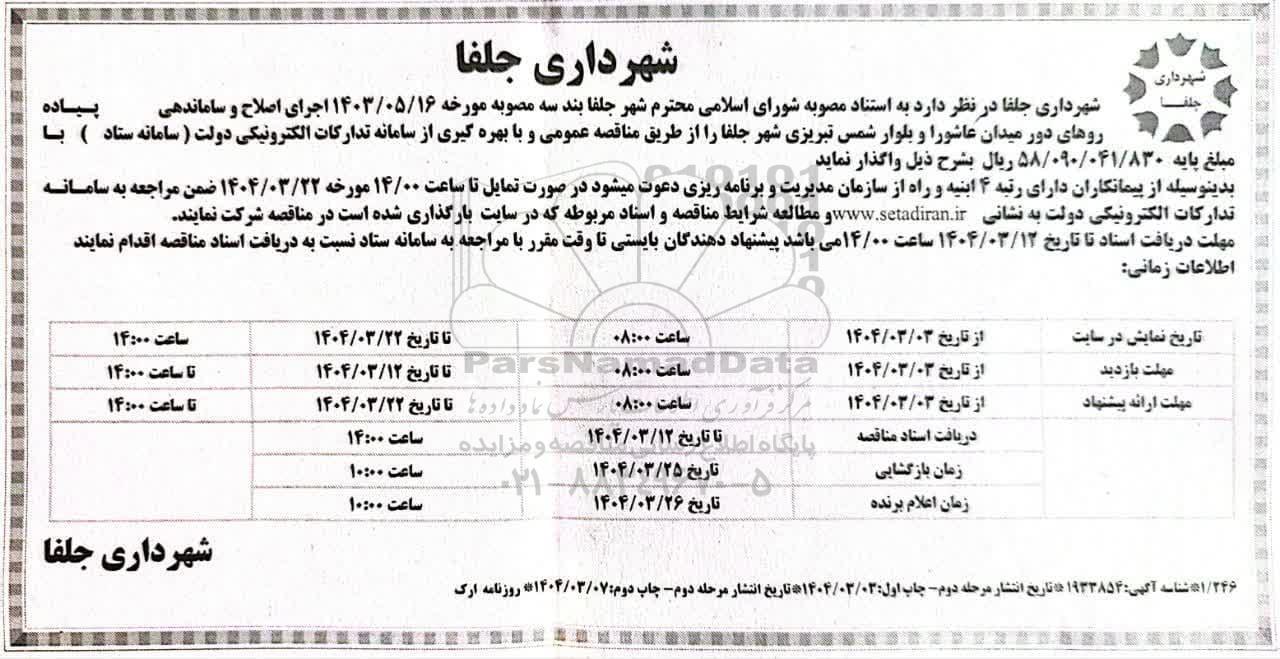 شهرداری جلفا
شهرداری
جلفا
شهرداری جلفا در نظر دارد به استناد مصوبه شورای اسلامی محترم شهر جلفا بند سه مصوبه مورخه ۱۴۰۳/۰۵/۱۶ اجرای اصلاح و ساماندهی پیاده
روهای دور میدان عاشورا و بلوار شمس تبریزی شهر جلفا را از طریق مناقصه عمومی و با بهره گیری از سامانه تدارکات الکترونیکی دولت ( سامانه ستاد ) با
مبلغ پایه ۵۸/۰۹۰/۰۴۱/۸۳۰ ریال بشرح ذیل واگذار نماید
بدینوسیله از پیمانکاران دارای رتبه ۴ ابنیه و راه از سازمان مدیریت و برنامه ریزی دعوت میشود در صورت تمایل تا ساعت ۱۴/۰۰ مورخه ۱۴۰۴/۰۳/۲۲ ضمن مراجعه به سامانه
تدارکات الکترونیکی دولت به نشانی www.setadiran.ir و مطالعه شرایط مناقصه و اسناد مربوطه که در سایت بارگذاری شده است در مناقصه شرکت نمایند.
مهلت دریافت اسناد تا تاریخ ۱۴۰۴/۰۳/۱۲ ساعت ۱۴/۰۰ می باشد پیشنهاد دهندگان بایستی تا وقت مقرر با مراجعه به سامانه ستاد نسبت به دریافت اسناد مناقصه اقدام نمایند
اطلاعات زمانی:
تاریخ نمایش در سایت از تاریخ ۱۴۰۴/۰۳/۰۳ ساعت ۰۸:۰۰ تا تاریخ ۱۴۰۴/۰۳/۲۲ ساعت ۱۴:۰۰
مهلت بازدید از تاریخ ۱۴۰۴/۰۳/۰۳ ساعت ۰۸:۰۰ تا تاریخ ۱۴۰۴/۰۳/۱۲ تا ساعت ۱۴:۰۰
مهلت ارائه پیشنهاد از تاریخ ۱۴۰۴/۰۳/۰۳ ساعت ۰۸:۰۰ تا تاریخ ۱۴۰۴/۰۳/۲۲ تا ساعت ۱۴:۰۰
دریافت اسناد مناقصه تا تاریخ ۱۴۰۴/۰۳/۱۲ ساعت ۱۴:۰۰
زمان بازگشایی تاریخ ۱۴۰۴/۰۳/۲۵ ساعت ۱۰:۰۰
زمان اعلام برنده تاریخ ۱۴۰۴/۰۳/۲۶ ساعت ۱۰:۰۰
ParsNamadData
پایگاه اطلاع رسانی مناقصه و مزایده
شهرداری جلفا
۱/۲۴۶*شناسه آگهی:۱۹۳۳۸۵۴*تاریخ انتشار مرحله دوم- چاپ اول:۱۴۰۴/۰۳/۰۳*تاریخ انتشار مرحله دوم- چاپ دوم:۱۴۰۴/۰۳/۰۷* روزنامه ارک